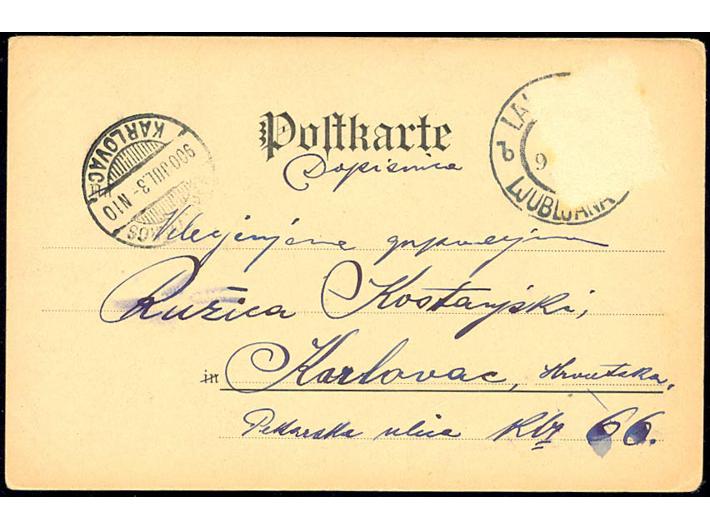 Postkarte
Dopisnica
KARLOVAC
900 JUL 3 - N10
LA
LJUBLJANA
9
Ružica Kostanjški,
in Karlovac, Hrvatska,
Pekarska ulica Kbr 66.